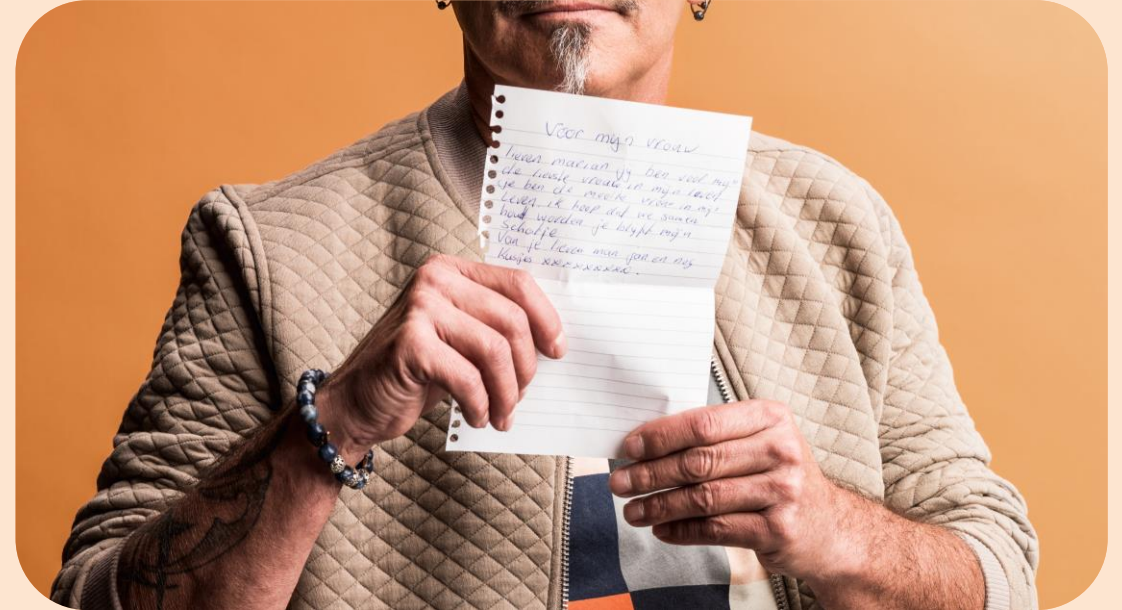 Voor mijn vrouw
lieven marian jij ben voor mijn
de liefste vrouw in mijn leven
je ben de mooiste vrouw in mijn
Leven ik hoop dat we samen
houd worden je blijft mijn
schatje
Van je lieven man
Kusjes xxxxxxxxx.